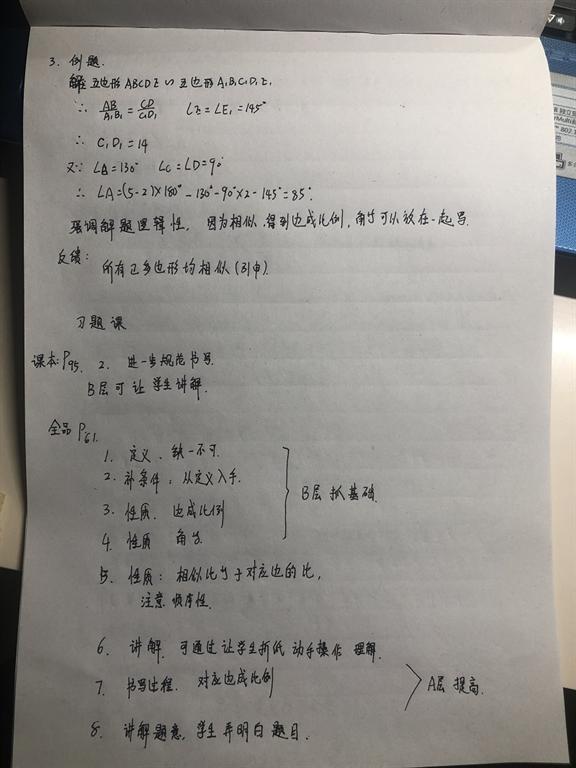 3. 例题.
解: 五边形ABCDE∽五边形A₁B₁C₁D₁E₁
∴ AB/A₁B₁ = CD/C₁D₁ ∠E=∠E₁=145°
∴ C₁D₁=14
又∵ ∠B=130° ∠C=∠D=90°
∴ ∠A=(5-2)×180°-130°-90°×2-145°=85°.
强调解题逻辑性, 因为相似.得到边成比例,角等可以放在一起写.
反馈:
所有正多边形均相似(引申).
习题课
课本:P95. 2. 进一步规范书写.
B层可让学生讲解.
全品P61.
1. 定义、缺一不可.
2. 补条件:从定义入手.
3. 性质. 边成比例
4. 性质 角等.
B层抓基础.
5. 性质:相似比等于对应边的比,
注意顺序性.
6. 讲解.可通过让学生折纸动手操作 理解.
7. 书写过程. 对应边成比例
A层提高.
8. 讲解题意,学生弄明白题目.